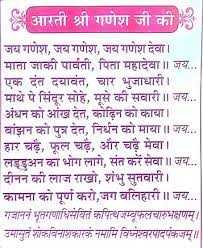 आरती श्री गणेश जी की
जय गणेश, जय गणेश, जय गणेश देवा।
माता जाकी पार्वती, पिता महादेवा।। जय...
एक दंत दयावंत, चार भुजाधारी।
माथे पे सिंदूर सोहे, मूसे की सवारी ।। जय...
अंधन को आंख देत, कोढ़िन को काया।
बांझन को पुत्र देत, निर्धन को माया ।। जय...
हार चढ़ै, फूल चढ़ै, और चढ़ै मेवा।
लड्डुअन का भोग लागे, संत करें सेवा ।। जय...
दीनन की लाज राखो, शंभु सुतवारी।
कामना को पूर्ण करो, जग बलिहारी ।। जय...
गजाननं भूतगणाधिसेवितं कपित्थजम्बूफलचारुभक्षणम्।
उमासुतं शोकविनाशकारकं नमामि विघ्नेश्वरपादपंकजम्।।